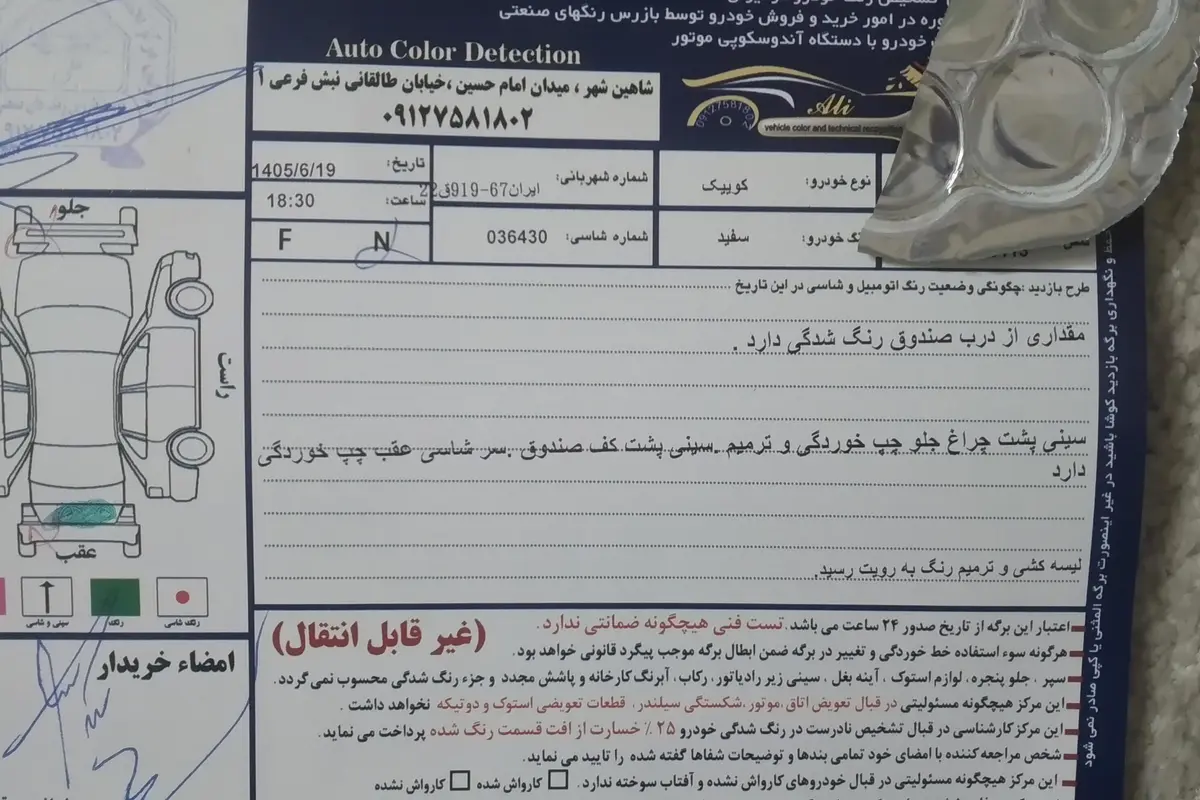 وره در امور خرید و فروش خودرو توسط بازرس رنگهای صنعتی
خودرو با دستگاه آندوسکوپی موتور
Auto Color Detection
شاهین شهر ، میدان امام حسین ،خیابان طالقانی نبش فرعی ۱
۰۹۱۲۷۵۸۱۸۰۲
Ali
vehicle color and technical
09127581802
نوع خودرو: کوییک
شماره شهربانی: ایران67-919ق22
تاریخ: 1405/6/19
ساعت: 18:30
خودرو: سفید
شماره شاسی: 036430
F N
طرح بازدید :چگونگی وضعیت رنگ اتومبیل و شاسی در این تاریخ
مقداری از درب صندوق رنگ شدگی دارد .
سینی پشت چراغ جلو چپ خوردگی و ترمیم .سینی پشت کف صندوق .سر شاسی عقب چپ خوردگی
دارد
لیسه کشی و ترمیم رنگ به رویت رسید.
جلو
راست
عقب
سینی و شاسی
رنگ
رنگ شاسی
امضاء خریدار
(غیر قابل انتقال)
اعتبار این برگه از تاریخ صدور ۲۴ ساعت می باشد.تست فنی هیچگونه ضمانتی ندارد .
هرگونه سوء استفاده خط خوردگی و تغییر در برگه ضمن ابطال برگه موجب پیگرد قانونی خواهد بود.
سپر ، جلو پنجره، لوازم استوک ، آینه بغل ، سینی زیر رادیاتور، رکاب، آبرنگ کارخانه و پاشش مجدد و جزء رنگ شدگی محسوب نمی گردد.
این مرکز هیچگونه مسئولیتی در قبال تعویض اتاق،موتور،شکستگی سیلندر، قطعات تعویضی استوک و دوتیکه نخواهد داشت .
این مرکز کارشناسی در قبال تشخیص نادرست در رنگ شدگی خودرو ۲۵ ٪ خسارت از افت قسمت رنگ شده پرداخت می نماید.
شخص مراجعه کننده با امضای خود تمامی بندها و توضیحات شفاها گفته شده را تایید می نماید.
این مرکز هیچگونه مسئولیتی در قبال خودروهای کارواش نشده و آفتاب سوخته ندارد. کارواش شده کارواش نشده
و نگهداری برگه بازدید کوشا باشید در غیر اینصورت برگه المثنی یا کپی صادر نمی شود